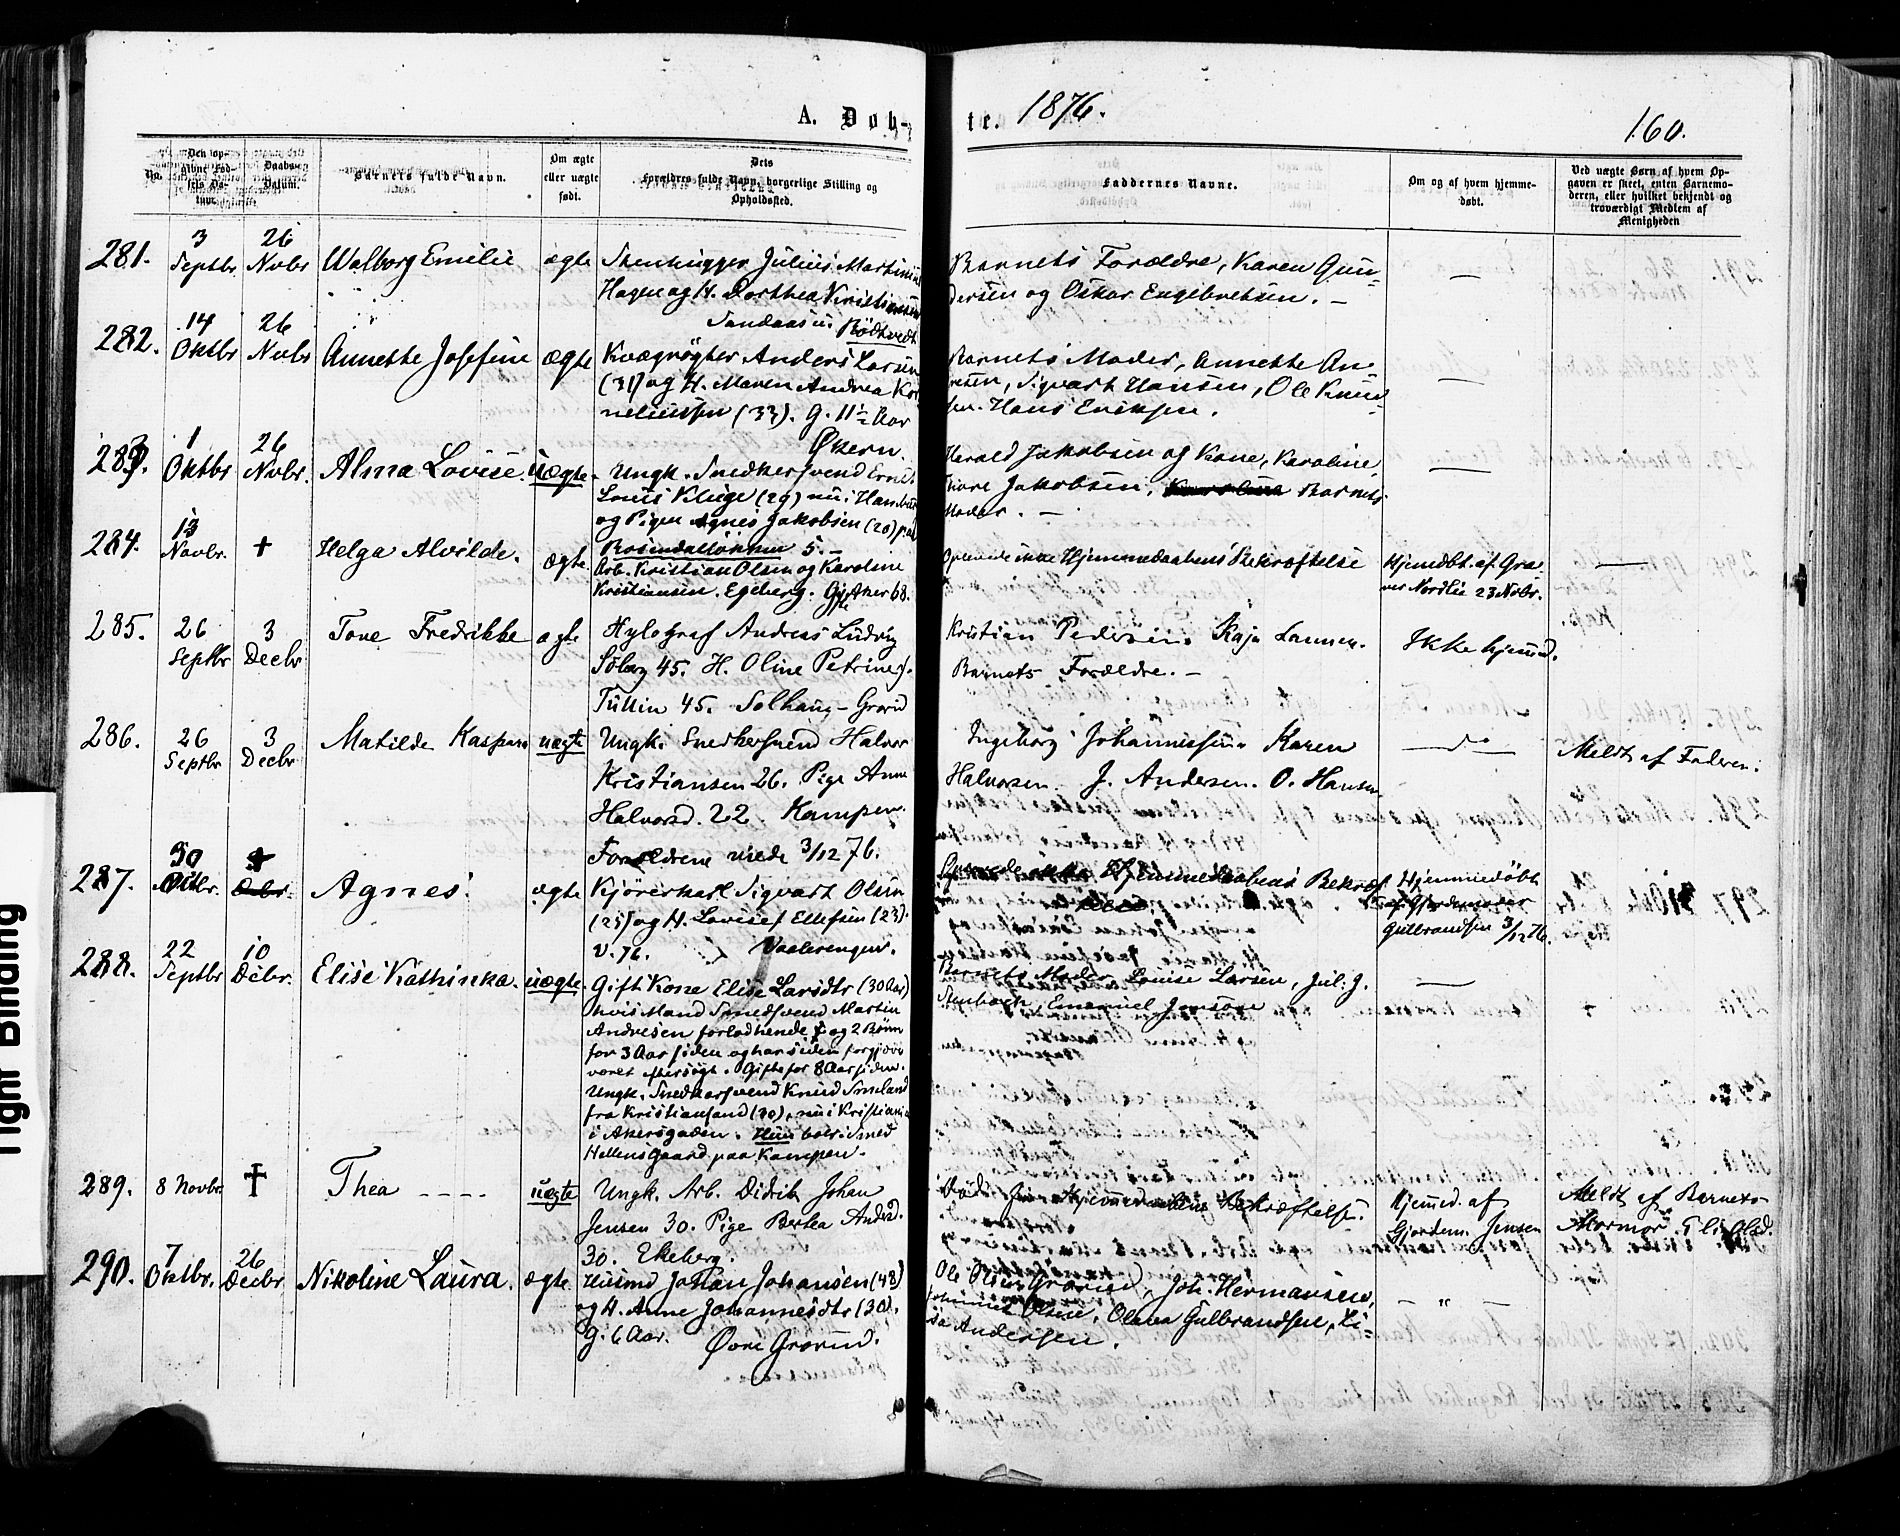 A. Døb-
te. 1876.
160.
No.
Den opgivne Fødsels Datum.
Daabs-Datum.
Barnets fulde Navn.
Om ægte eller uægte født.
Dets Forældres fulde Navn, borgerlige Stilling og Opholdssted.
Faddernes Navne.
Om og af hvem hjemmedøbt.
Ved uægte Børn af hvem Opgaven er skeet, enten Barnemoderen, eller hvilket bekjendt og troværdigt Medlem af Menigheden
281. 3 Septbr 26 Novbr Walborg Emilie ægte
Stenhugger Julius Martinius
Hagen og H. Dorthea Kristiansen
Sandaasen. Rödtvedt
Barnets Forældre, Karen Gun-
dersen og Oskar Engebretsen. —
—
282. 14 Oktbr 26 Novbr Annette Josefine ægte
Kvægrøgter Anders Larsen
(31) og H. Maren Andrea Kor
neliussen (33). G. 11½ Aar
Økern.
Barnets Moder, Annette An-
dresen, Sigvart Hansen, Ole Knud-
sen. Hans Eriksen.
—
283. 1 Oktbr 26 Novbr. Alma Lovise. uægte.
Ungk. Snedkersvend Ernst
Louis Kluge (29) nu i Hamburg
og Pigen Agnes Jakobsen (20) paa
Rosendalløkken 5. —
Harald Jakobsen og Kone, Karoline
Thore Jakobsen, Barnets
Moder. —
—
284. 13 Novbr. + Helga Alvilde. ægte.
Arb. Kristian Olsen og Karoline
Kristiansen. Egeberg. Gifte Aker 68.
Oplevede ikke Hjemmedaabens Bekræftelse
Hjemdbt. af Gra-
ver Nordlie 23 Novbr.
—
285. 26 Septbr 3 Decbr Tove Fredrikke ægte
Hylograf Andreas Ludvig
Solberg 45. H. Oline Petrine f.
Tullin 45. Solhaug - Grorud
Kristian Pedersen. Kaja Larsen.
Barnets Forældre. —
Ikke hjemd.
286. 26 Septbr 3 Decbr Matilde Kaspara uægte
Ungk. Snedkersvend Halvor
Kristiansen 26. Pige Anne
Halvorsd. 22 Kampen.
Forældrene viede 3/12 76.
Ingeborg Johannessen. Karen
Halvorsen. J. Andersen. O. Hansen
— do —
Meldt af Faderen.
287. 30 Oktbr. + Agnes. ægte
Kjørerkarl Sigvart Olsen
(25) og H. Lovise f Ellefsen (23).
V. 76. Vaalerengen.
Oplevede ikke Hjemmedaabens Bekræf-
telse
Hjemmedøbt
af Gjordemoder
Gulbrandsen 3/12 76.
288. 22 Septbr 10 Decbr. Elise Kathinka. uægte.
Gift Kone Elise Larsdtr (30 Aar)
hvis Mand Smedsvend Martin
Andresen forlod hende og 2 Børn
for 3 Aar siden og har siden forgjæves
været eftersøgt. Gifte for 8 Aar siden.
Ungk. Snedkersvend Knud Smeland
fra Kristiansand (30), nu i Kristiania
i Akersgaden. Hun bor i Smed
Hellens Gaard paa Kampen.
Barnets Moder Louise Larsen, Jul. J.
Stenbach, Emanuel Jonsson
—
289. 8 Novbr. † Thea - - - - uægte
Ungk. Arb. Didrik Johan
Jensen 30. Pige Berthea Andersd.
30. Ekeberg.
Død før Hjemmedaabens Bekræftelse.
Hjemmed. af
Gjordem. Jensen
Meldt af Barnets
Mormor
290. 7 Oktbr. 26 Decbr. Nikoline Laura. ægte
Husmd Johan Johansen (48)
og H. Anne Johannesdtr (30).
G. 6 Aar. Øvre Grorud.
Ole Olsen Grorud, Joh. Hermansen,
Johannes Olsen, Olava Gulbrandsen, Li-
sa Andersen.
— " —
Tight Binding